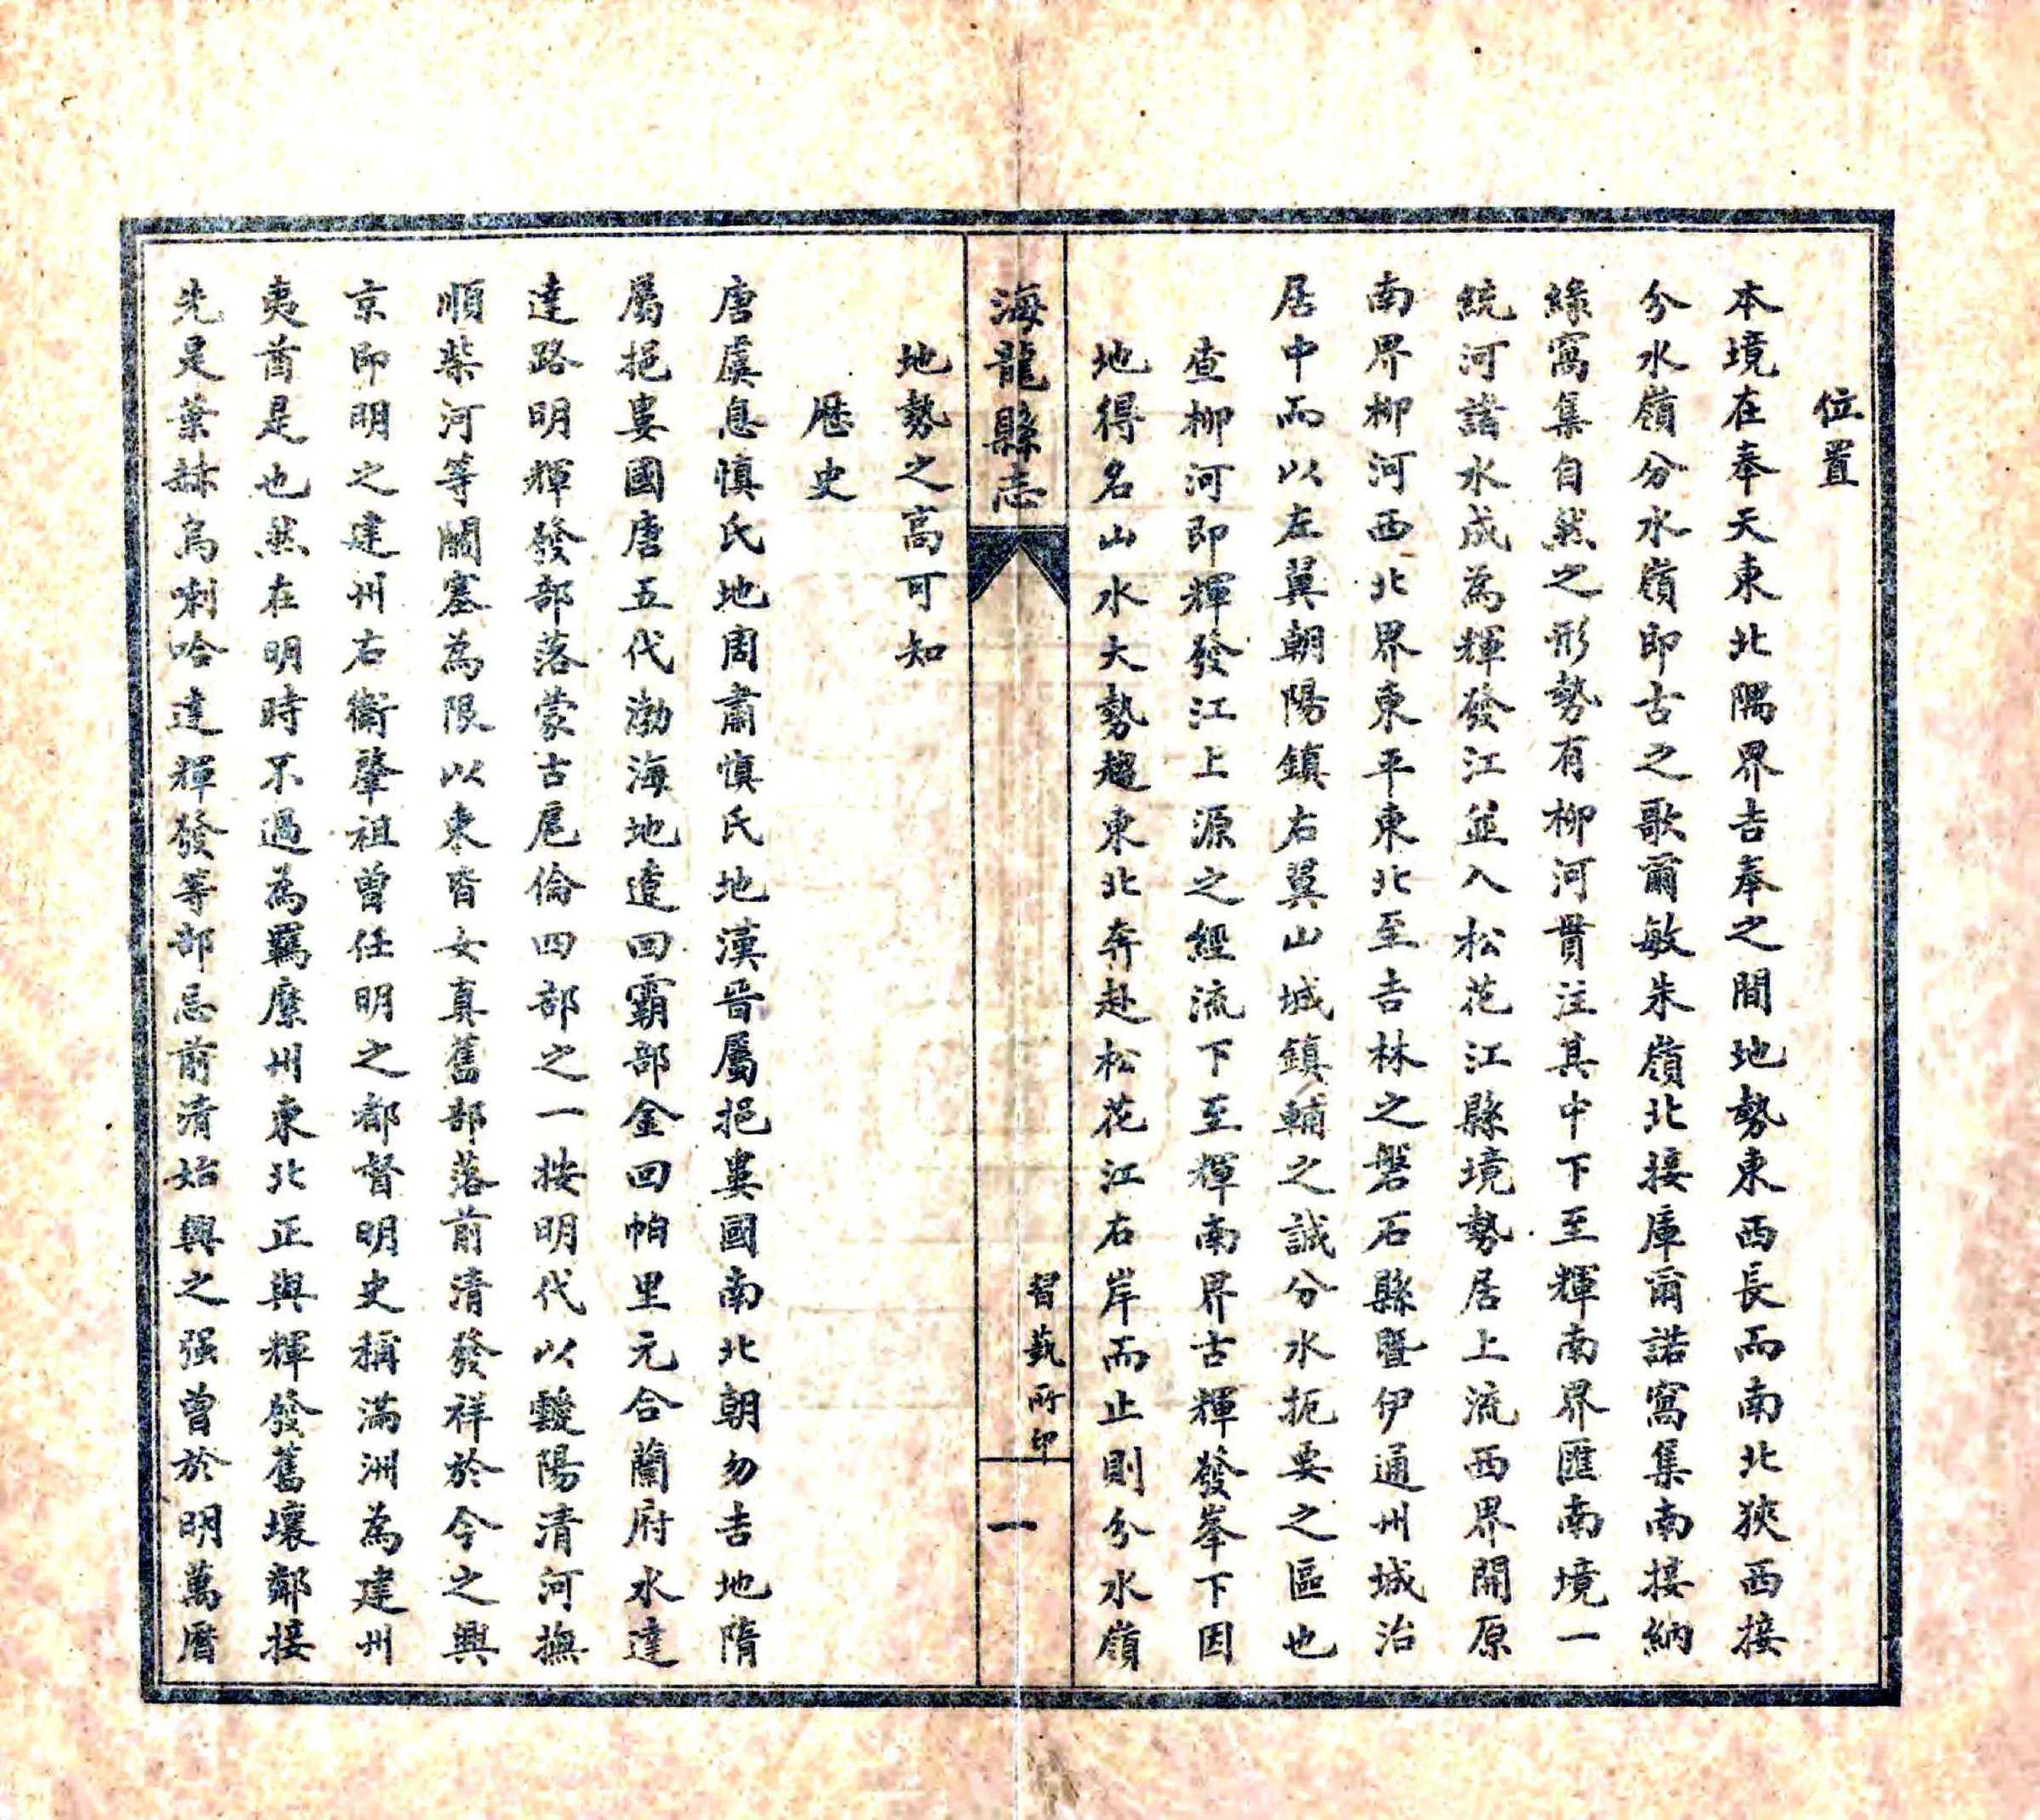 位置
本境在奉天東北隅界吉奉之間地勢東西長而南北狹西接
分水嶺分水嶺即古之歌爾敏朱嶺北接庫爾諾窩集南接納
綠窩集自然之形勢有柳河貫注其中下至輝南界匯南境一
統河諸水成為輝發江並入松花江縣境勢居上流西界開原
南界柳河西北界東平東北至吉林之磐石縣暨伊通州城治
居中而以左翼朝陽鎮右翼山城鎮輔之誠分水扼要之區也
查柳河即輝發江上源之經流下至輝南界古輝發峯下因
地得名山水大勢趨東北奔赴松花江右岸而止則分水嶺
海龍縣志
習藝所印
一
地勢之高可知
歷史
唐虞息慎氏地周肅慎氏地漢晉屬挹婁國南北朝勿吉地隋
屬挹婁國唐五代渤海地遼回霸部金回帕里元合蘭府水達
達路明輝發部落蒙古扈倫四部之一按明代以靉陽清河撫
順柴河等關塞為限以東皆女真舊部落前清發祥於今之興
京即明之建州右衛肇祖曾任明之都督明史稱滿洲為建州
夷酋是也然在明時不過為羈縻州東北正與輝發舊壤鄰接
先是葉赫烏喇哈達輝發等部忌前清始興之强曾於明萬曆